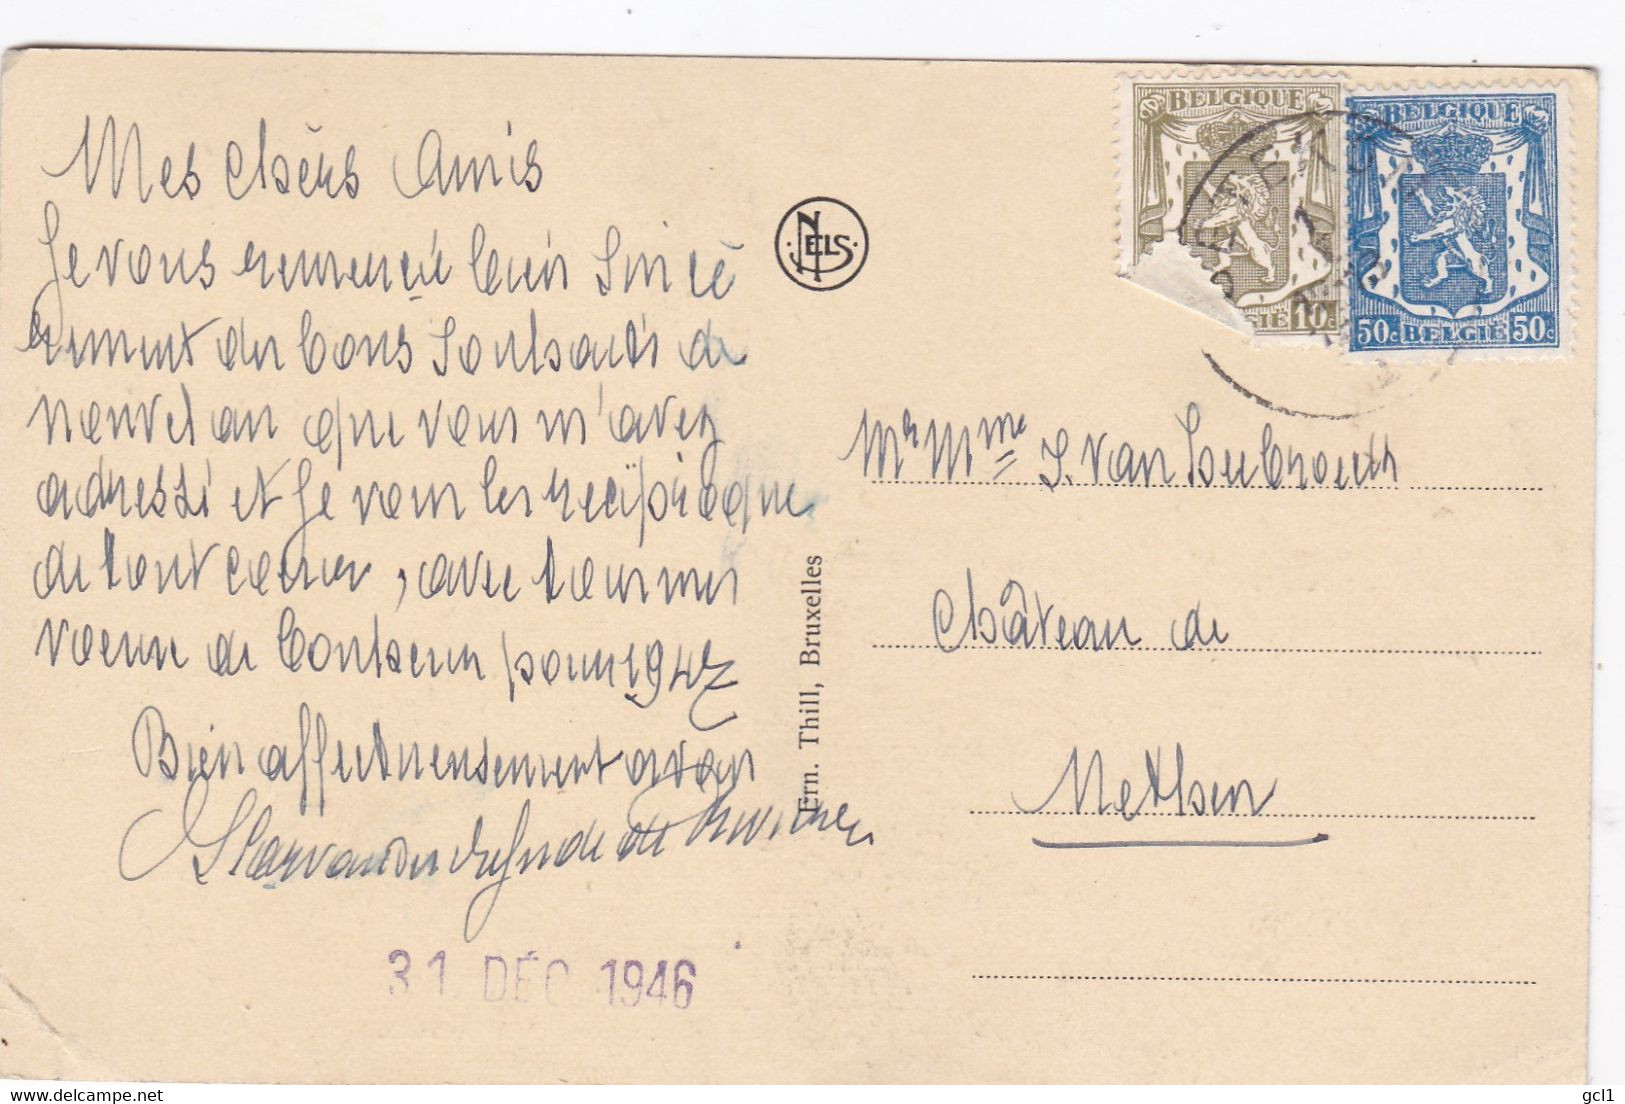 Mes chèrs Amis
Je vous remercie bien sincè
rement des bons souhaits de
nouvel an que vous m'avez
adressé et je vous les réciproque
de tout coeur, avec tous mes
voeux de bonheur pour 1947
Bien affectueusement à vous
31 DÉC 1946
NELS
Ern. Thill, Bruxelles
BELGIQUE
10c
BELGIQUE
50c BELGIE 50c
Mr Mme J. Van
Château de
Nethen
delcampe.net
gcl1